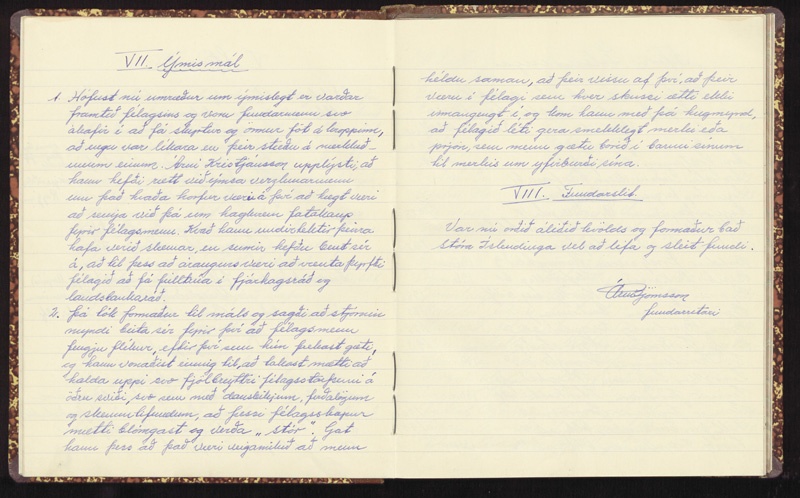 VII. Ýmis mál
1. Hófust nú umræður um ýmislegt er varðar
framtíð félagsins og voru fundarmenn svo
ákafir í að fá skyrtur og önnur föt á kroppinn,
að engu var líkara en þeir stæðu á
einum. Árni Kristjánsson upplýsti, að
hann hefði rætt við ýmsa verzlunarmenn
um það hvaða horfur væri á því að hægt væri
að semja við þá um hagkvæm fatakaup
fyrir félagsmenn. Kvað hann undirtektir þeirra
hafa verið slæmar, en sumir hefðu bent sér
á, að til þess að árangurs væri að vænta þyrfti
félagið að fá fulltrúa í fjárhagsráð og
landsbankaráð.
2. Þá tók formaður til máls og sagði að stjórnin
myndi beita sér fyrir því að félagsmenn
fengju flíkur, eftir því sem hún frekast gæti,
og hann vonaðist einnig til, að takast mætti að
halda uppi svo fjölbreyttri félagsstarfsemi á
öðru sviði, svo sem með dansæfingum,
og skemmtifundum, að þessi félagsskapur
mætti blómgast og verða „stór". Gat
hann þess að það væri mikið að menn
héldu saman, að þeir vissu af því, að þeir
væru í félagi sem hver skussi ætti ekki
innangengt í, og kom hann með þá hugmynd,
að félagið léti gera smekklegt merki eða
prjón, sem menn gætu borið í barmi sínum
til merkis um yfirburði sína.
VIII. Fundarslit.
Var nú orðið áliðið kvölds og formaður bað
stóra Íslendinga vel að lifa og sleit fundi.
Björnsson
fundarritari